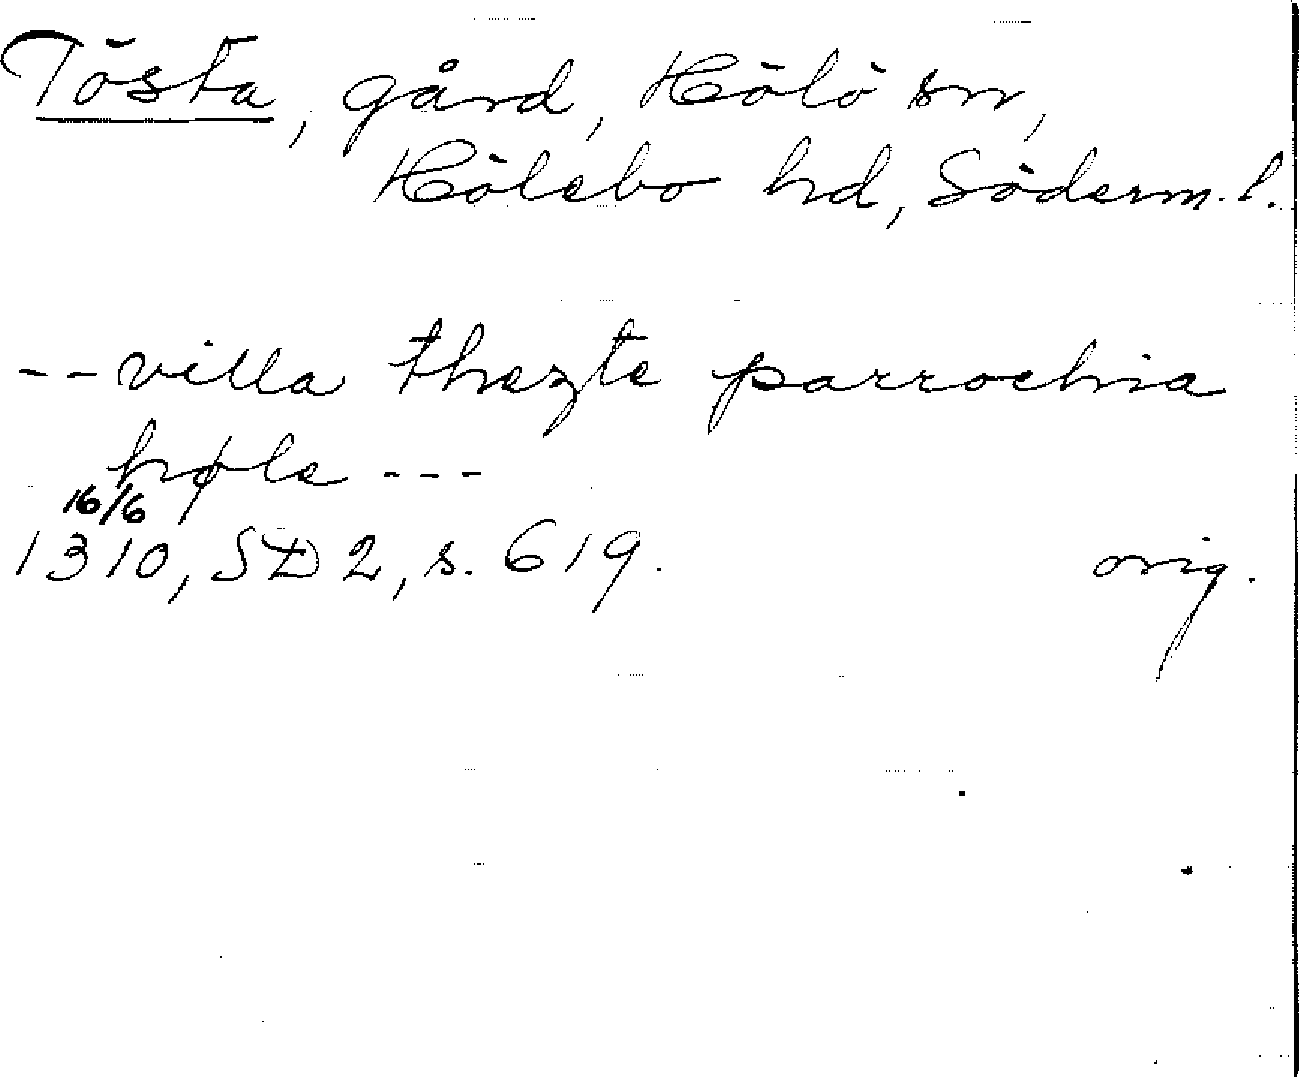 Tösta, gård, Hölö sn,
Hölebo hd, Söderm. l.
-- villa thezte parrochia
høle ---
16/6
1310, SD 2, s. 619. orig.